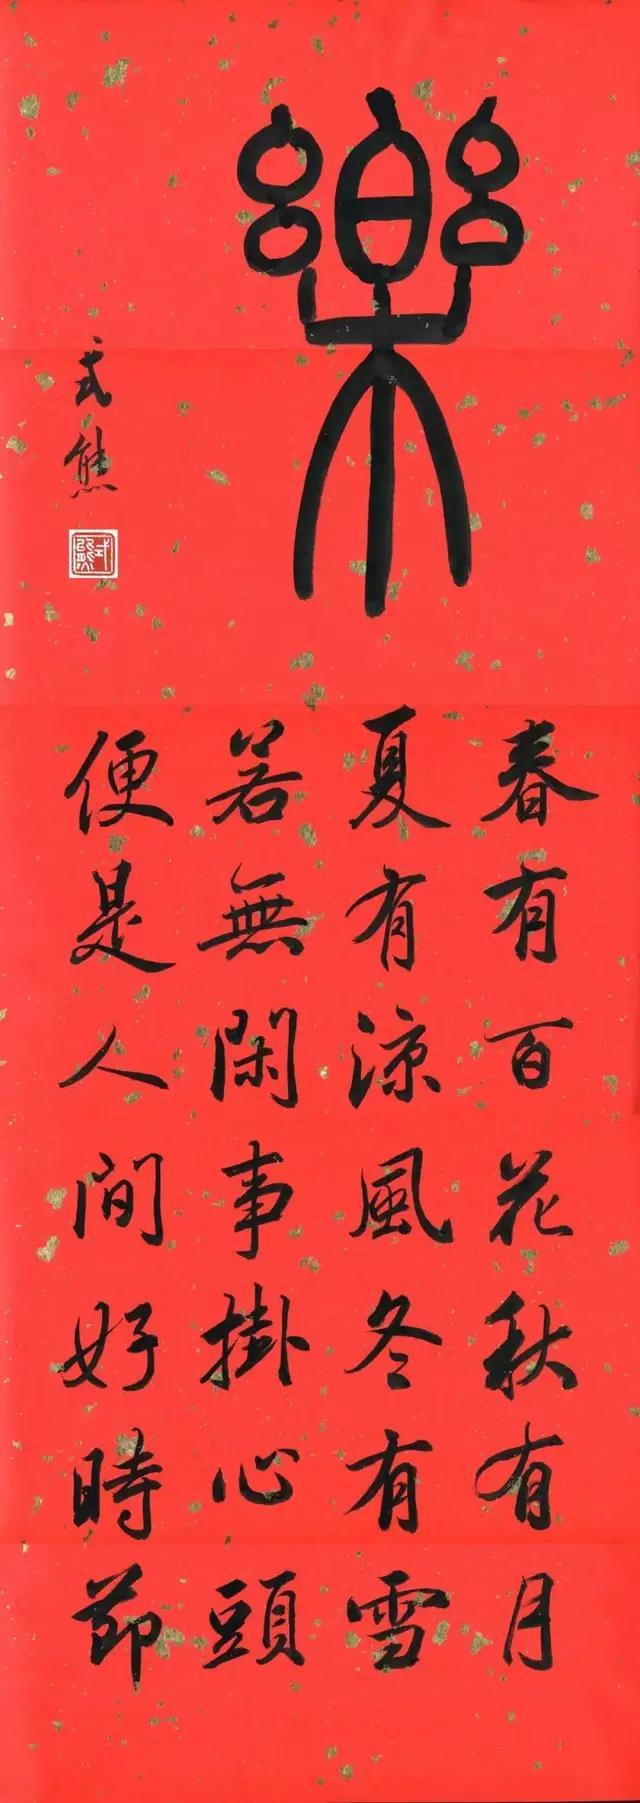 樂
春有百花秋有月
夏有涼風冬有雪
若無閑事掛心頭
便是人間好時節
式熊
式熊